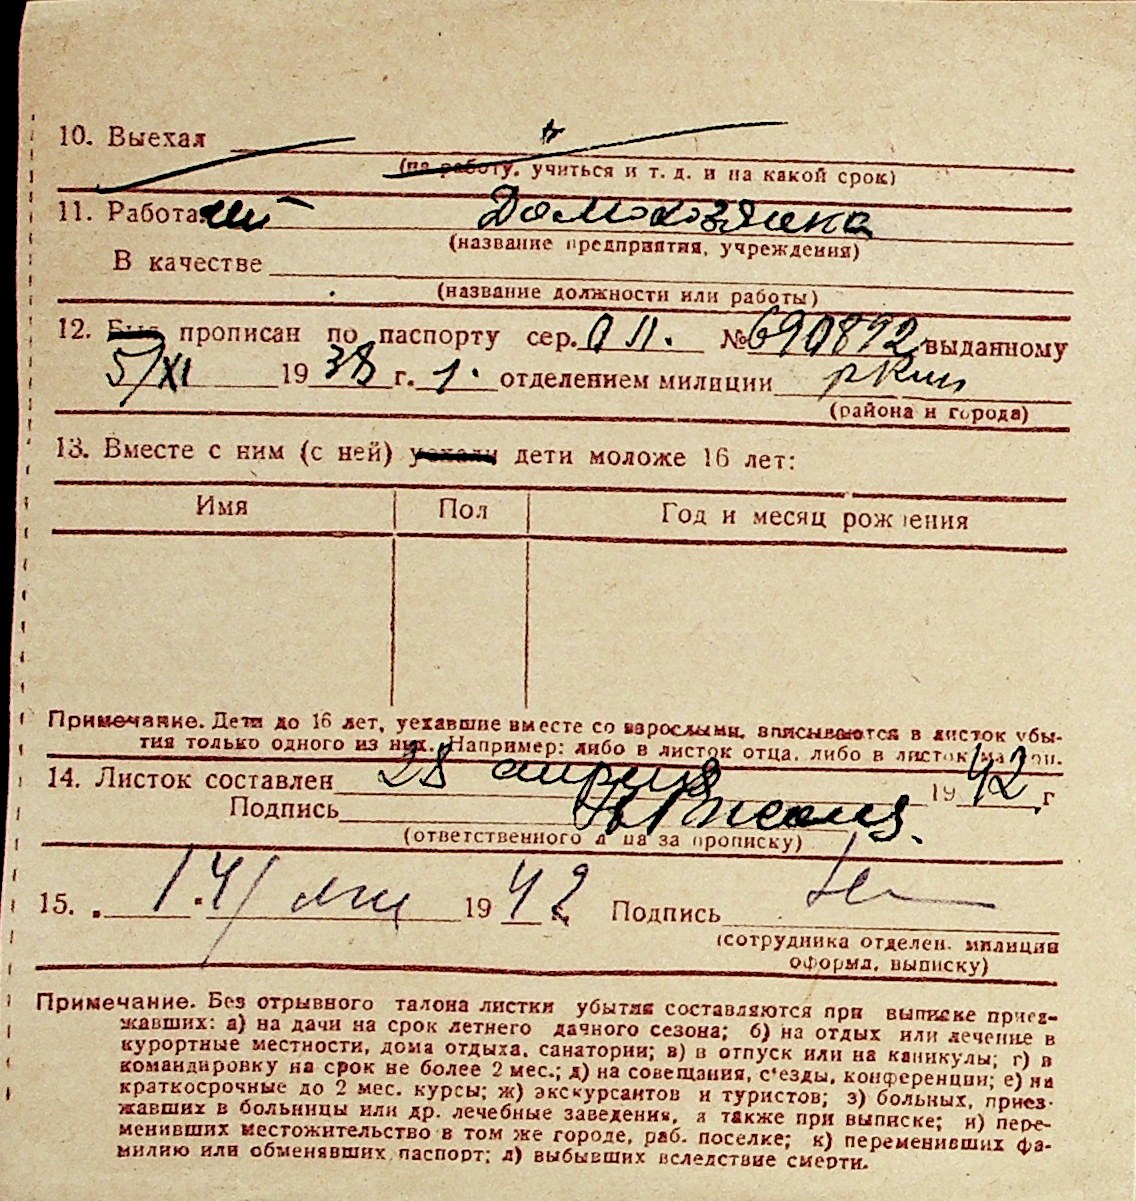 10. Выехал
(на работу, учиться и т. д. и на какой срок)
11. Работает Домохозяика
(название предприятия, учреждения)
В качестве
(название должности или работы)
12. Был прописан по паспорту сер. № 690892 выданному
5/XI 1938 г. 1. отделением милиции РКМ
(района и города)
13. Вместе с ним (с ней) уехали дети моложе 16 лет:
Имя Пол Год и месяц рождения
Примечание. Дети до 16 лет, уехавшие вместе со взрослыми, вписываются в листок убы-
тия только одного из них. Например: либо в листок отца, либо в листок матери.
14. Листок составлен 28 апреля 1942 г
Подпись
(ответственного лица за прописку)
15. 14/ мая 1942 г. Подпись
(сотрудника отделен. милиции
оформл. выписку)
Примечание. Без отрывного талона листки убытия составляются при выписке приез-
жавших: а) на дачи на срок летнего дачного сезона; б) на отдых или лечение в
курортные местности, дома отдыха, санатории; в) в отпуск или на каникулы; г) в
командировку на срок не более 2 мес.; д) на совещания, с'езды, конференции; е) на
краткосрочные до 2 мес. курсы; ж) экскурсантов и туристов; з) больных, приез-
жавших в больницы или др. лечебные заведения, а также при выписке; и) пере-
менивших местожительство в том же городе, раб. поселке; к) переменивших фа-
милию или обменявших паспорт; л) выбывших вследствие смерти.